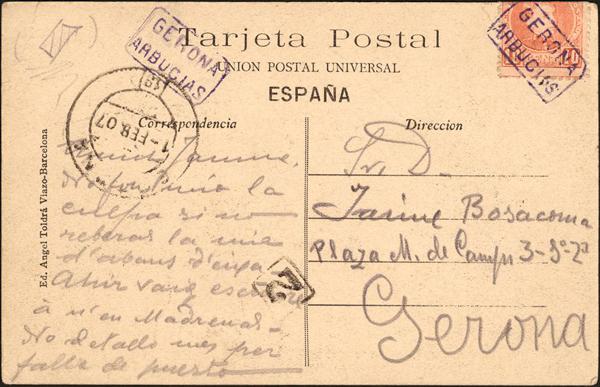 Tarjeta Postal
UNION POSTAL UNIVERSAL
ESPAÑA
GERONA
ARBUCIAS
GERONA
ARBUCIAS
10
1-FEB.07
Correspondencia
Direccion
Ed. Angel Toldrá Viazo-Barcelona
Jaume,
No la
culpa si no
rebéras la mia
d'abans d'
Ahir vaig escriure
á n'en Madrenas.
No detallo mes per
falta de puesto
Sr. D.
Jaime Bosacoma
Plaza M. de Camps 3-3º-2ª
Gerona